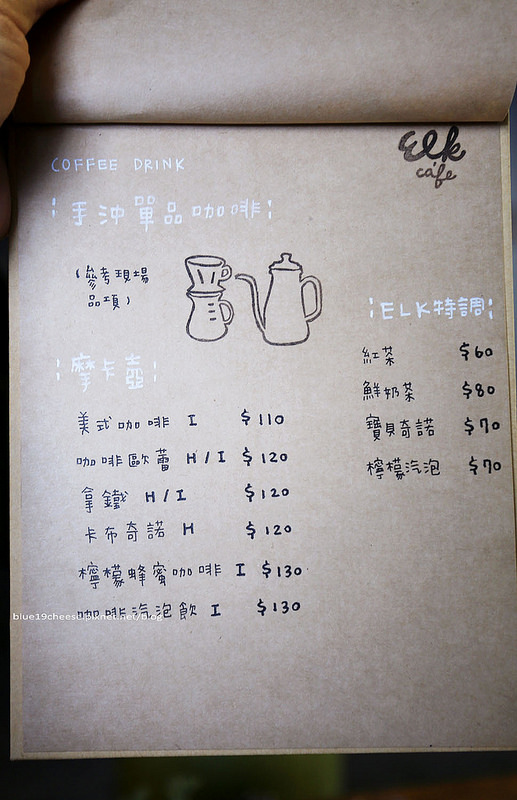 Elk
café
COFFEE DRINK
手沖單品咖啡
(參考現場
品項)
摩卡壺
美式咖啡 I $110
咖啡歐蕾 H/I $120
拿鐵 H/I $120
卡布奇諾 H $120
檸檬蜂蜜咖啡 I $130
咖啡汽泡飲 I $130
ELK特調
紅茶 $60
鮮奶茶 $80
寶貝奇諾 $70
檸檬汽泡 $70
blue19cheese.pixnet.net/blog